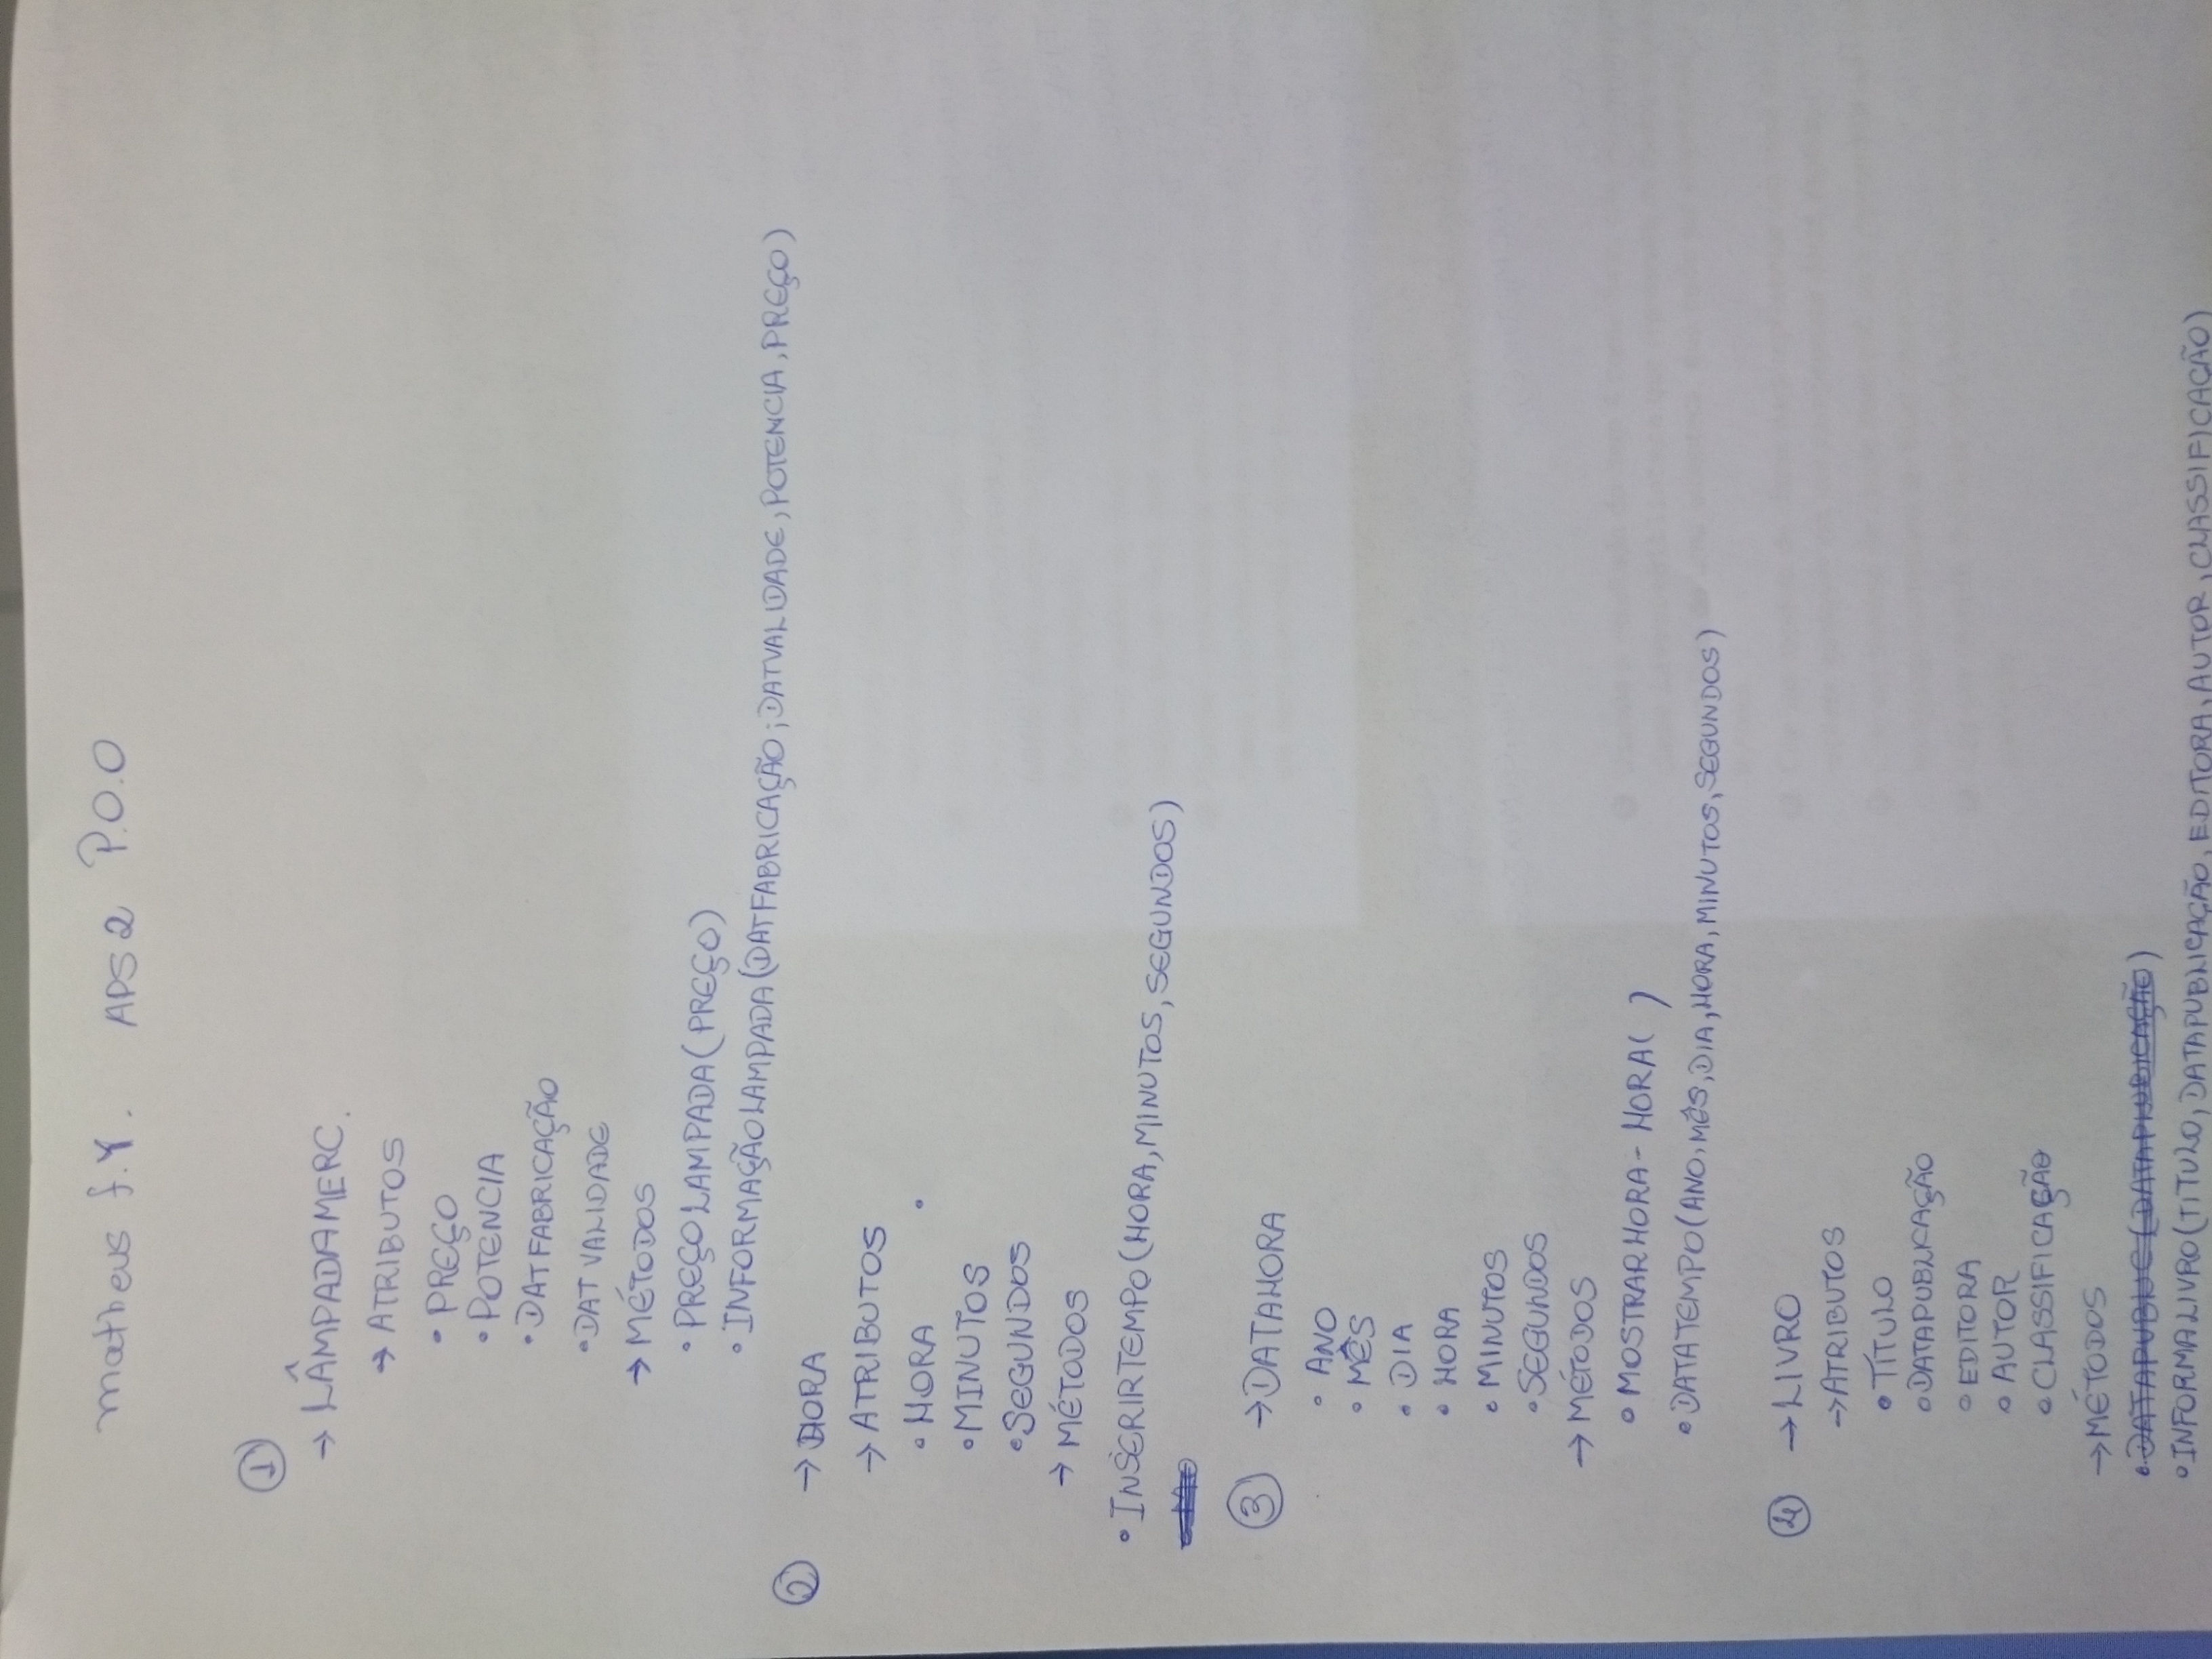 matheus f.Y. APS2 P.O.O
1
→ LÂMPADAMERC.
→ ATRIBUTOS
• PREÇO
• POTENCIA
• DATFABRICAÇÃO
• DATVALIDADE
→ MÉTODOS
• PREÇOLAMPADA(PREÇO)
• INFORMAÇÃOLAMPADA(DATFABRICAÇÃO;DATVALIDADE,POTENCIA,PREÇO)
2 → HORA
→ ATRIBUTOS
• HORA •
• MINUTOS
• SEGUNDOS
→ MÉTODOS
• INSERIRTEMPO(HORA,MINUTOS,SEGUNDOS)
3 → DATAHORA
• ANO
• MÊS
• DIA
• HORA
• MINUTOS
• SEGUNDOS
→ MÉTODOS
• MOSTRARHORA-HORA( )
• DATATEMPO(ANO,MÊS,DIA,HORA,MINUTOS,SEGUNDOS)
4 → LIVRO
→ ATRIBUTOS
• TÍTULO
• DATAPUBLICAÇÃO
• EDITORA
• AUTOR
• CLASSIFICAÇÃO
→ MÉTODOS
• INFORMALIVRO(TITULO,DATAPUBLICAÇÃO,EDITORA,AUTOR,CLASSIFICAÇÃO)